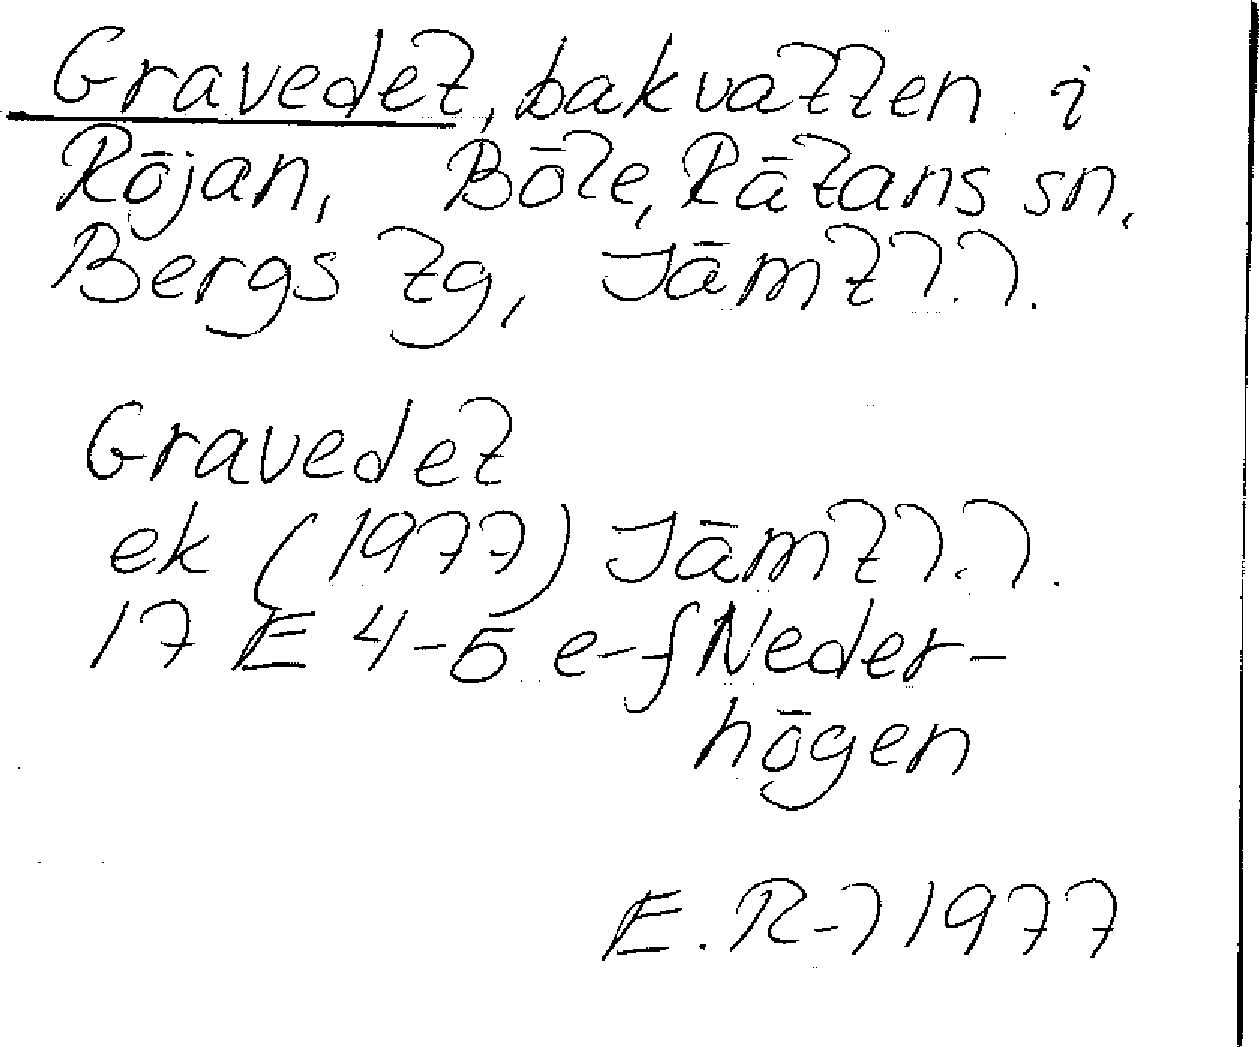 Gravedet, bakvatten i
Röjan, Böle, Rätans sn,
Bergs tg, Jämtl.l.
Gravedet
ek (1977) Jämtl.l.
17 E 4-5 e-f Neder-
högen
E. R-l 1977